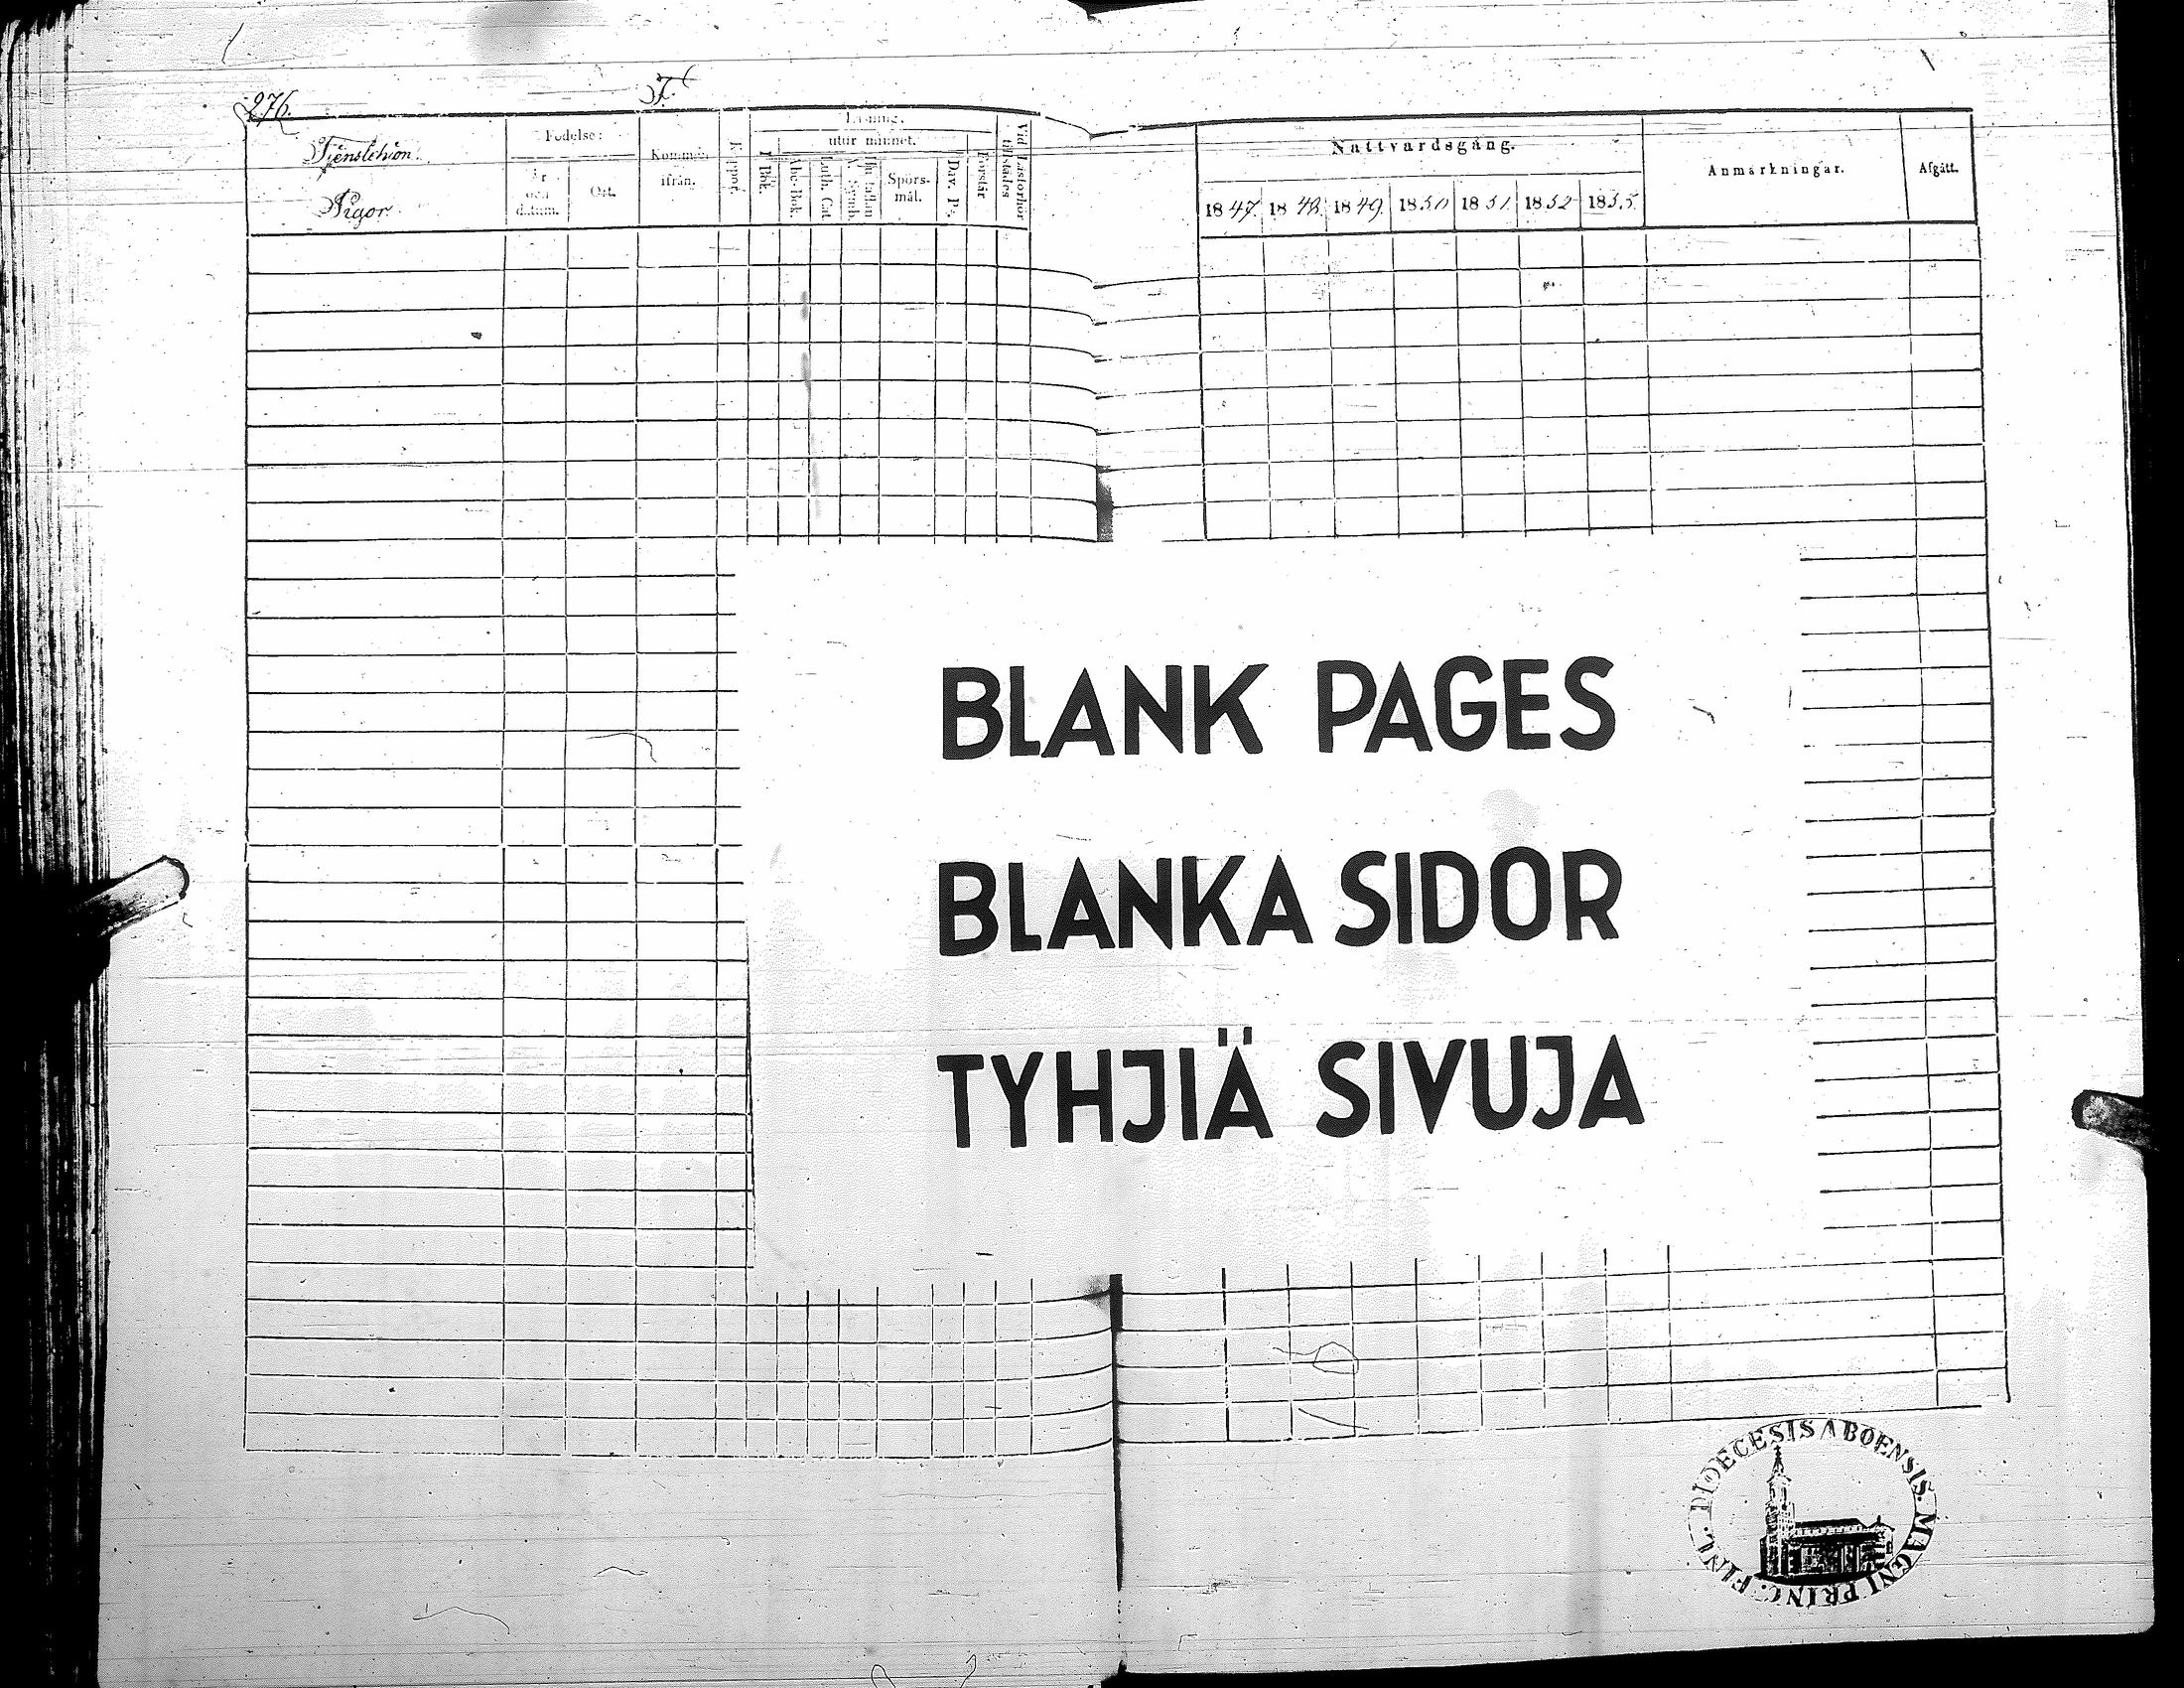 276.
Pigor.
Födelse:
år och datum.
Ort.
Kommen ifrån.
Koppor.
Läsning.
utur minnet.
I Bok.
Abc-Bok.
Luth. Cat.
Spörsmål.
Dav. Ps.
Förstår
Vid Läsförhör tillstädes
Nattvardsgång.
1847. 1848. 1849. 1850 1851 1852 1855.
Anmärkningar.
Afgått.
BLANK PAGES
BLANKA SIDOR
TYHJIÄ SIVUJA
DIOECESIS ABOENSIS. MAGNI PRINC. FINL.